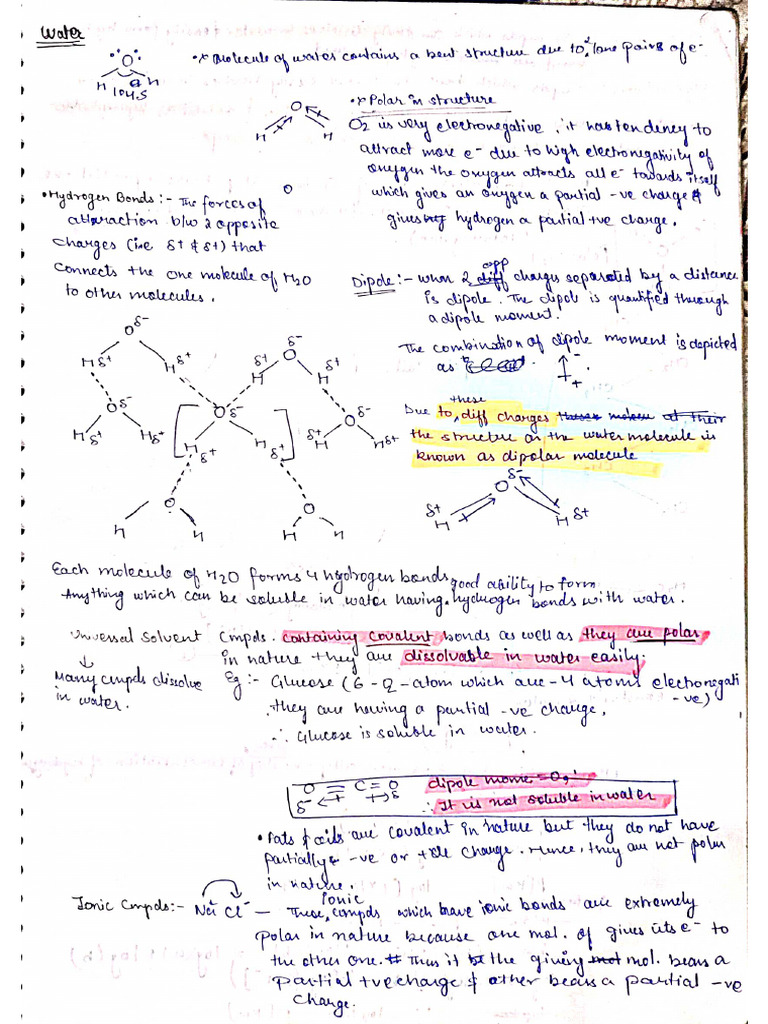 Water
•* Molecule of water contains a bent structure due to 2 lone pairs of e-
O
H H
104.5
•* Polar in structure
O
H H
O2 is very electronegative, it has tendency to
attract more e- due to high electronegativity of
oxygen the oxygen attracts all e- towards itself
which gives an oxygen a partial -ve charge &
gives hydrogen a partial +ve charge.
• Hydrogen Bonds :- The forces of
attraction b/w 2 opposite
charges (i.e δ+ & δ+) that
connects the one molecule of H2O
to other molecules.
Dipole :- when 2 opp charges separated by a distance
is dipole. The dipole is quantified through
a dipole moment.
The combination of dipole moment is depicted
as - +
Due to these diff charges
the structure or the water molecule is
known as dipolar molecule
O δ-
δ+ H H δ+
O δ-
H δ+ H δ+
δ+ O δ- δ+
H H
O δ-
H δ+ H δ+
O δ-
H δ+ H δ+
O δ-
δ+ H H δ+
O
H H
O
H H
Each molecule of H2O forms 4 hydrogen bonds
Anything which can be soluble in water having good ability to form hydrogen bonds with water.
Universal Solvent
↓
Many cmpds dissolve
in water.
Cmpds. containing covalent bonds as well as they are polar
in nature they are dissolvable in water easily.
Eg :- Glucose (6 - O - atom which are - 4 atoms electronegati
-ve)
they are having a partial -ve charge,
∴ Glucose is soluble in water.
O = C = O
δ- δ
dipole mome = 0
∴ It is not soluble in water
• Fats & oils are covalent in nature but they do not have
partially -ve or +ve charge. Hence, they are not polar
in nature.
Ionic Cmpds :- Na+ Cl- — These Ionic cmpds which have ionic bonds are extremely
polar in nature because one mol. of gives its e- to
the other one. Thus it the giving mol. bears a
partial +ve charge & other bears a partial -ve
charge.